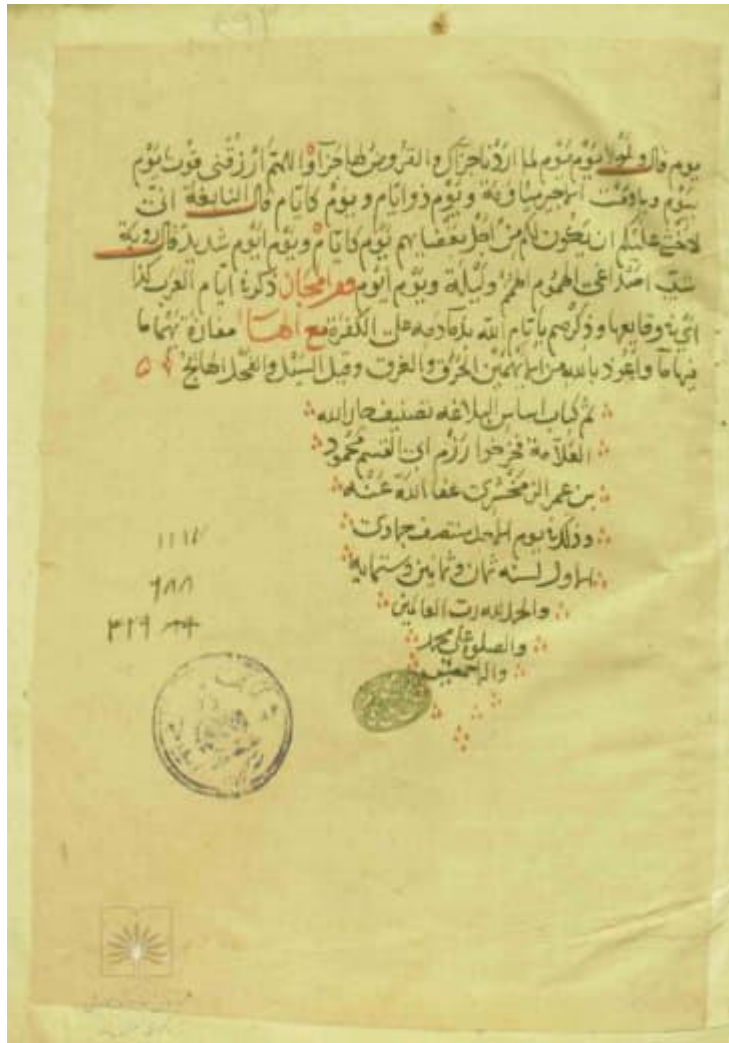 يوم قال ولولا يوم يوم لما اردنا جزاك والقروض لها جزآؤ اللهم ارزقني قوت يوم
بيوم وياومت الاجير مياومة ويوم ذو ايام ويوم كايام قال النابغة اني
لاخشى عليكم ان يكون لكم من اجل بغضايهم يوم كايام ويوم ايوم شديد قال روبة
شيب اصداغي الهموم الهمم وليلة ويوم ايوم ومن المجاز ذكر في ايام العرب كذا
اي في وقايعها وذكرهم بايام الله بدمادمه على الكفرة مع الهاء مفازة يهماء ما
فيها ماء واعوذ بالله من الايهمين الحرق والغرق وقيل السيل والفحل الهايج
تم كتاب اساس البلاغه تصنيف جار الله
العلامة فخر خوارزم ابي القسم محمود
بن عمر الزمخشري عفا الله عنه
وذلك في يوم الاحد منتصف جمادى
الاول لسنه ثمان وثمانين وستمايه
والحمد لله رب العالمين
والصلوة على محمد
واله اجمعين
٦٨٨